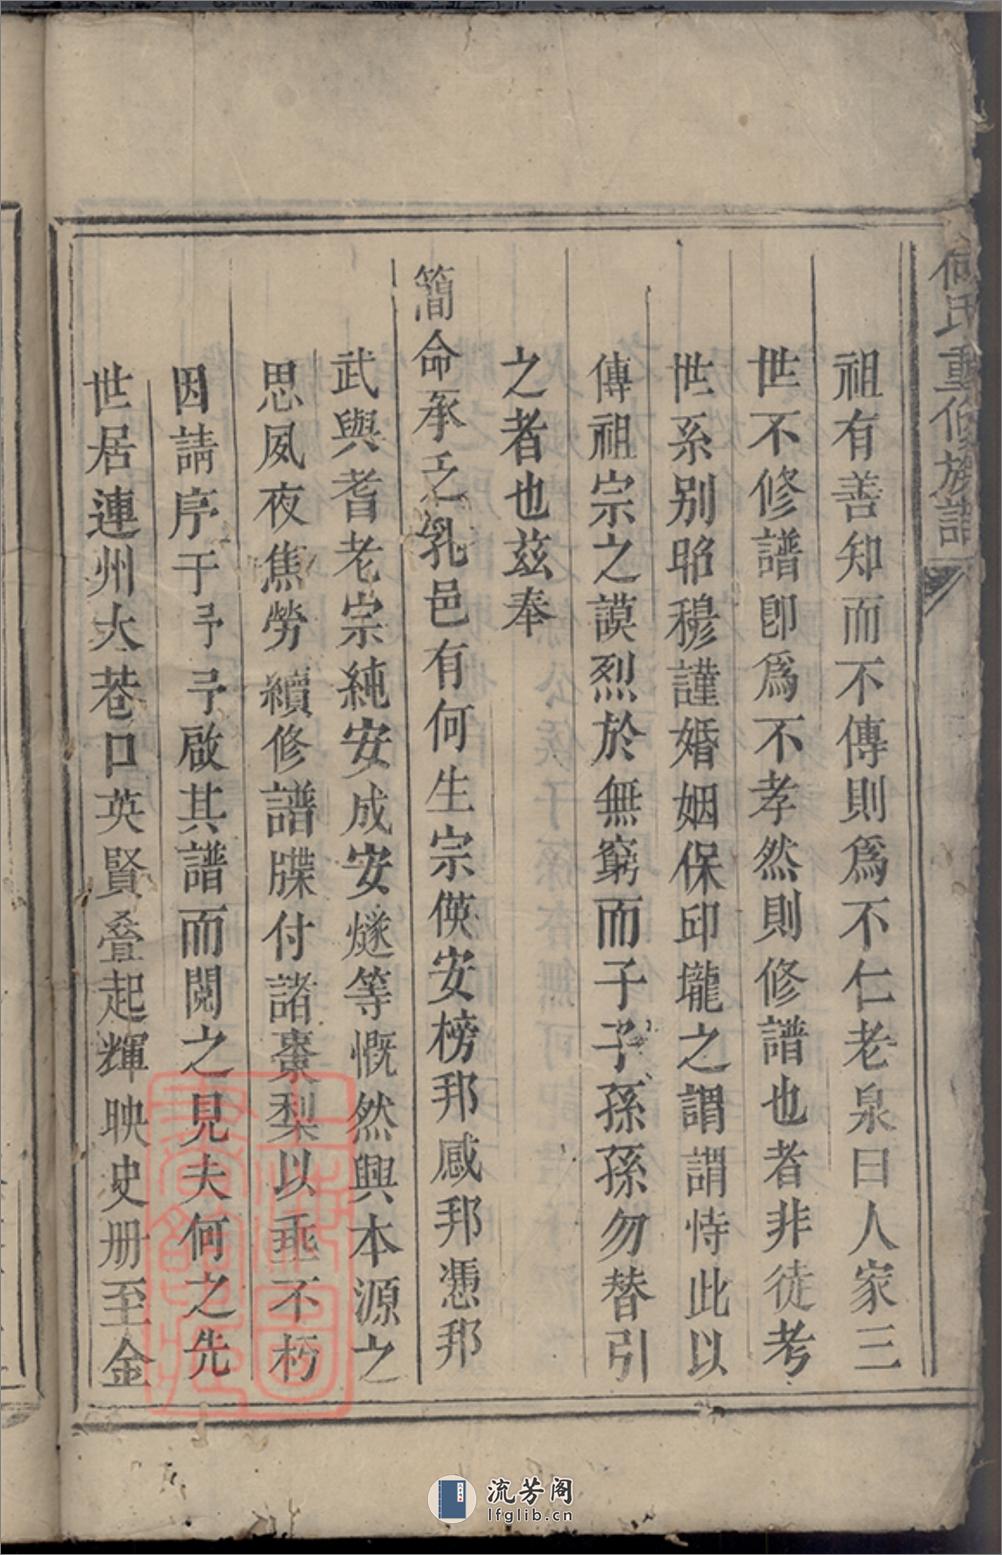 何氏重修族譜
祖有善知而不傳則爲不仁老泉曰人家三
世不修譜卽爲不孝然則修譜也者非徒考
世系别昭穆謹婚姻保邱壠之謂謂恃此以
傳祖宗之謨烈於無窮而子子孫孫勿替引
之者也茲奉
簡命承乏乳邑有何生宗偀安榜邦感邦憑邦
武與耆老宗純安成安燧等慨然興本源之
思夙夜焦勞續修譜牒付諸棗梨以垂不朽
因請序于予予啟其譜而閱之見夫何之先
世居連州大巷口英賢叠起輝映史册至金
流芳阁
lfglib.cn